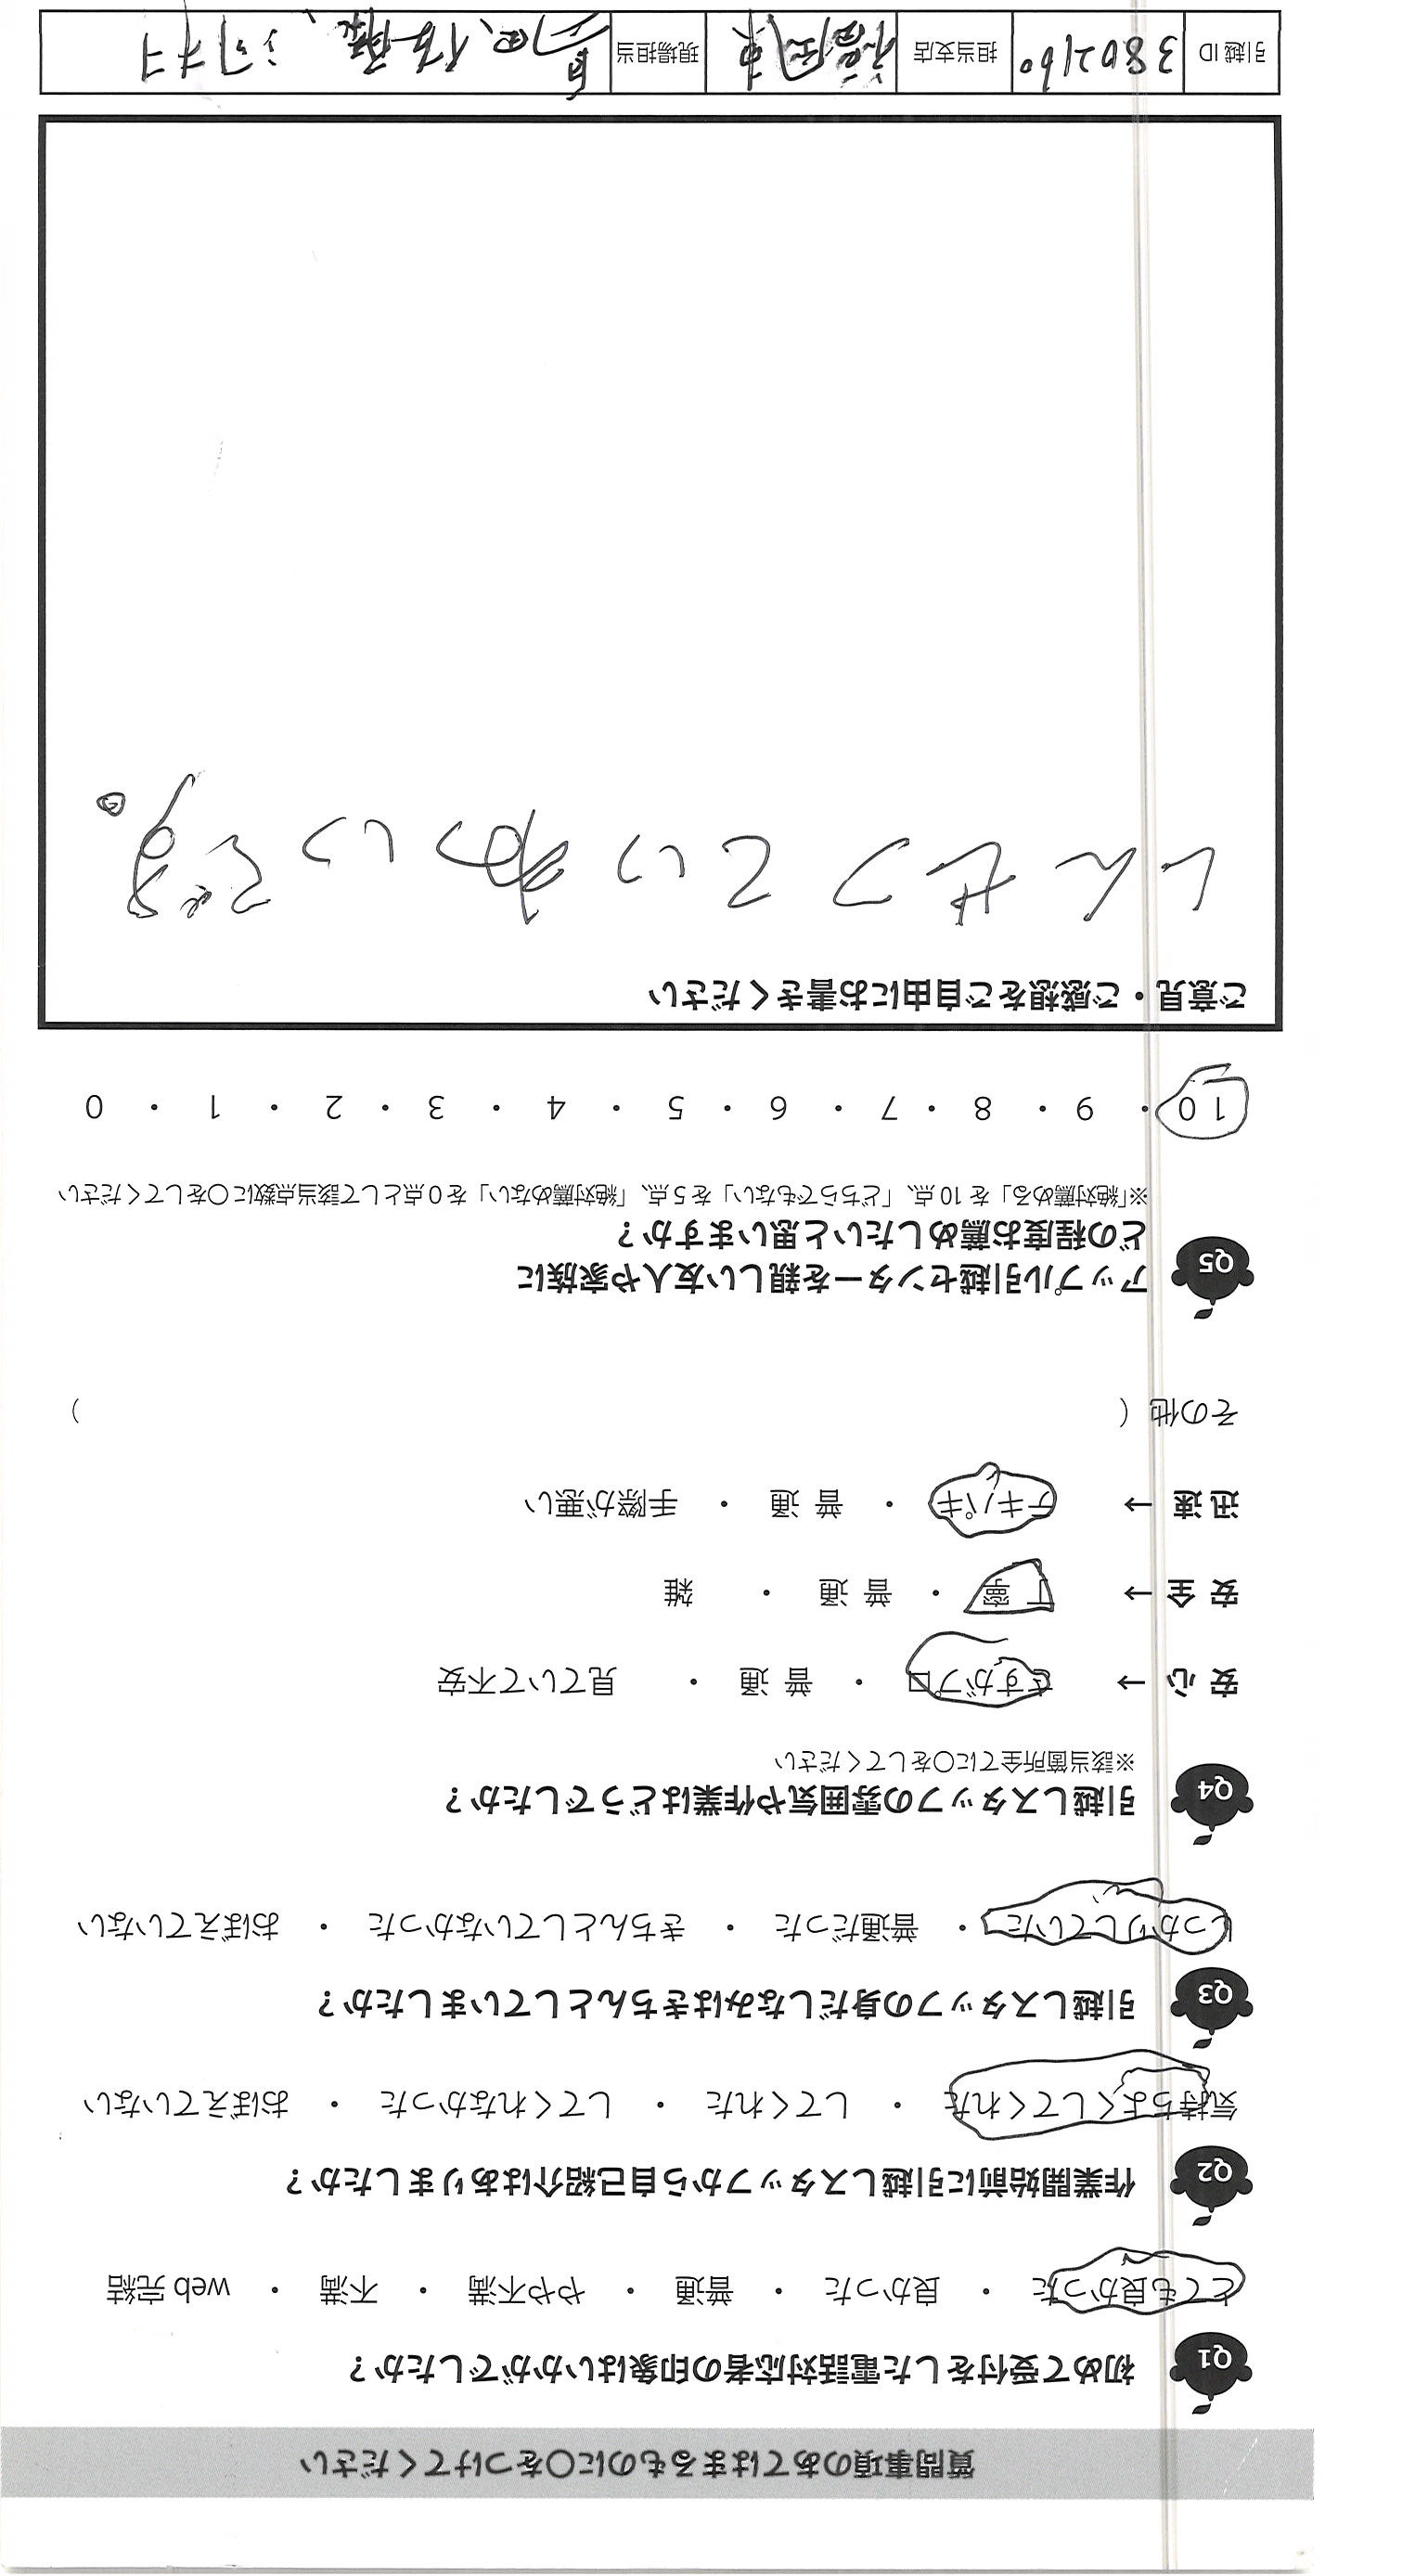 質問事項のあてはまるものに○をつけてください
Q1 初めて受付をした電話対応者の印象はいかがでしたか？
とても良かった ・ 良かった ・ 普通 ・ やや不満 ・ 不満 ・ web 完結
Q2 作業開始前に引越しスタッフから自己紹介はありましたか？
気持ちよくしてくれた ・ してくれた ・ してくれなかった ・ おぼえていない
Q3 引越しスタッフの身だしなみはきちんとしていましたか？
しっかりしていた ・ 普通だった ・ きちんとしていなかった ・ おぼえていない
Q4 引越しスタッフの雰囲気や作業はどうでしたか？
※該当箇所全てに○をしてください
安 心 → さすがプロ ・ 普 通 ・ 見ていて不安
安 全 → 丁 寧 ・ 普 通 ・ 雑
迅 速 → テキパキ ・ 普 通 ・ 手際が悪い
その他（ ）
Q5 アップル引越センターを親しい友人や家族に
どの程度お薦めしたいと思いますか？
※「絶対薦める」を 10 点、「どちらでもない」を 5 点、「絶対薦めない」を 0 点として該当点数に○をしてください
10 ・ 9 ・ 8 ・ 7 ・ 6 ・ 5 ・ 4 ・ 3 ・ 2 ・ 1 ・ 0
ご意見・ご感想をご自由にお書きください
しんせつていねいです。
引越 ID 3802160 担当支店 福岡東 現場担当